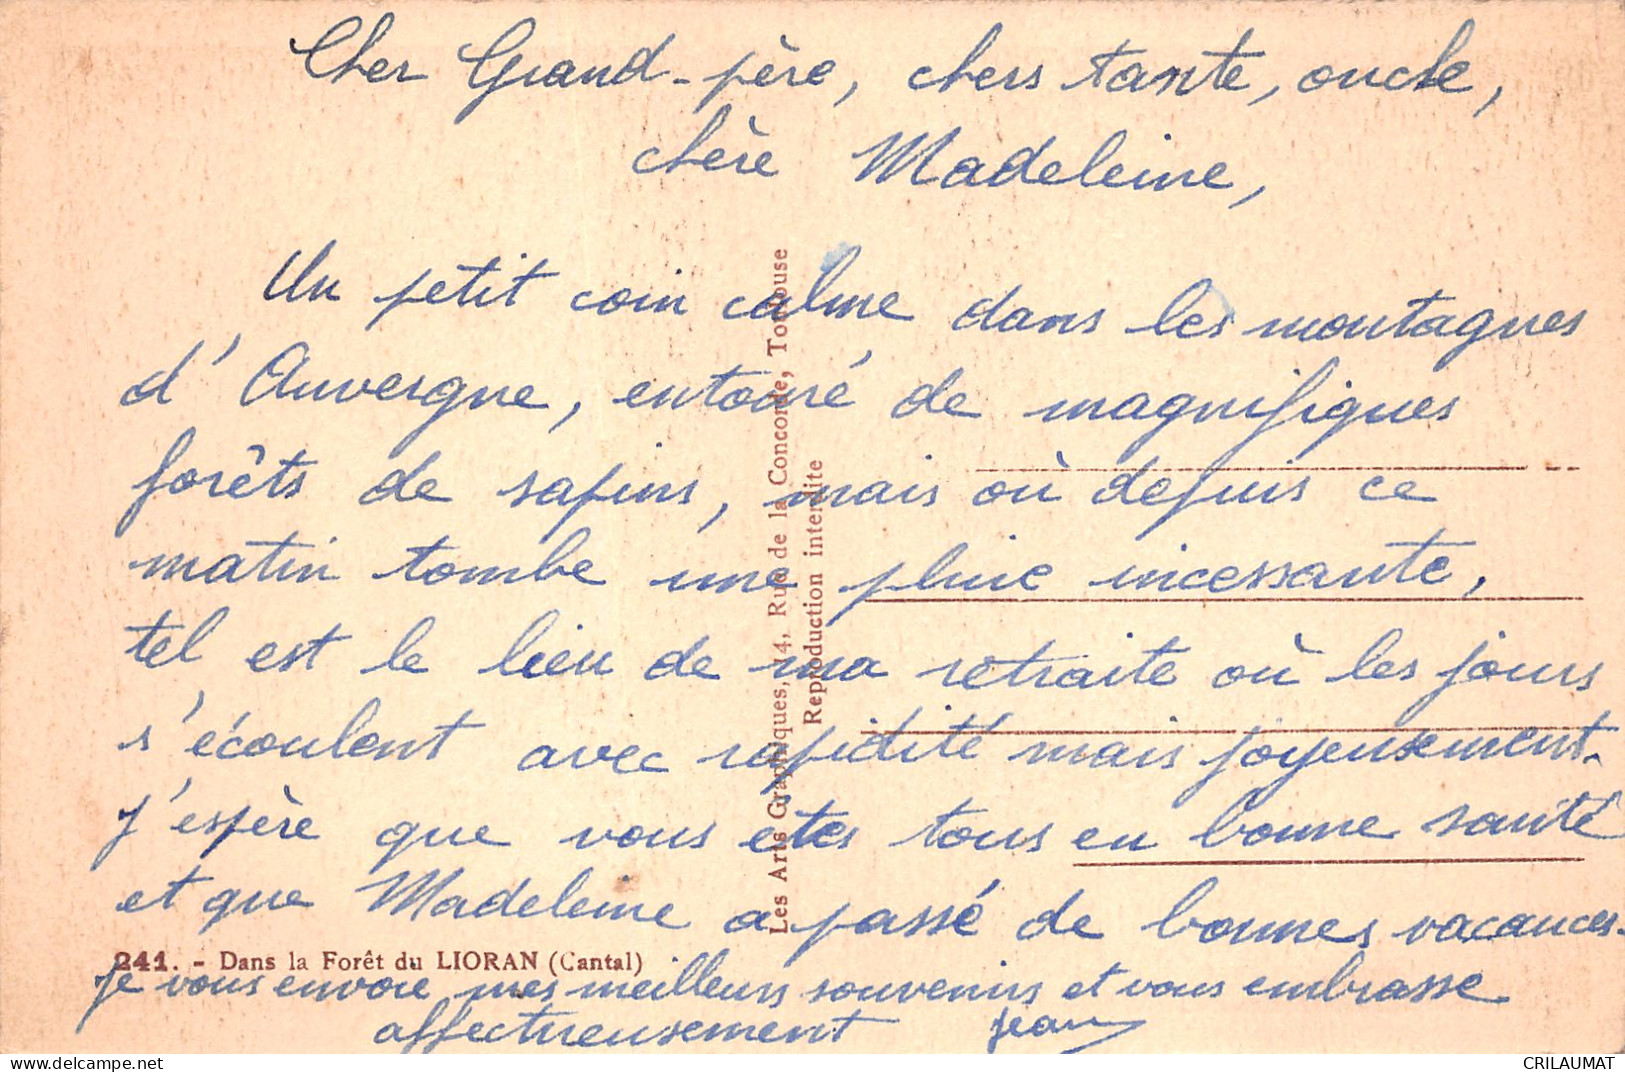 Cher Grand-père, chers tante, oncle,
chère Madeleine,
Un petit coin calme dans les montagnes
d'Auvergne, entouré de magnifiques
forêts de sapins, mais où depuis ce
matin tombe une pluie incessante,
tel est le lieu de ma retraite où les jours
s'écoulent avec rapidité mais joyeusement.
J'espère que vous êtes tous en bonne santé
et que Madeleine a passé de bonnes vacances.
Je vous envoie mes meilleurs souvenirs et vous embrasse
affectueusement Jean
241. - Dans la Forêt du LIORAN (Cantal)
Les Arts Graphiques, 14, Rue de la Concorde, Toulouse
Reproduction interdite
delcampe.net
CRILAUMAT